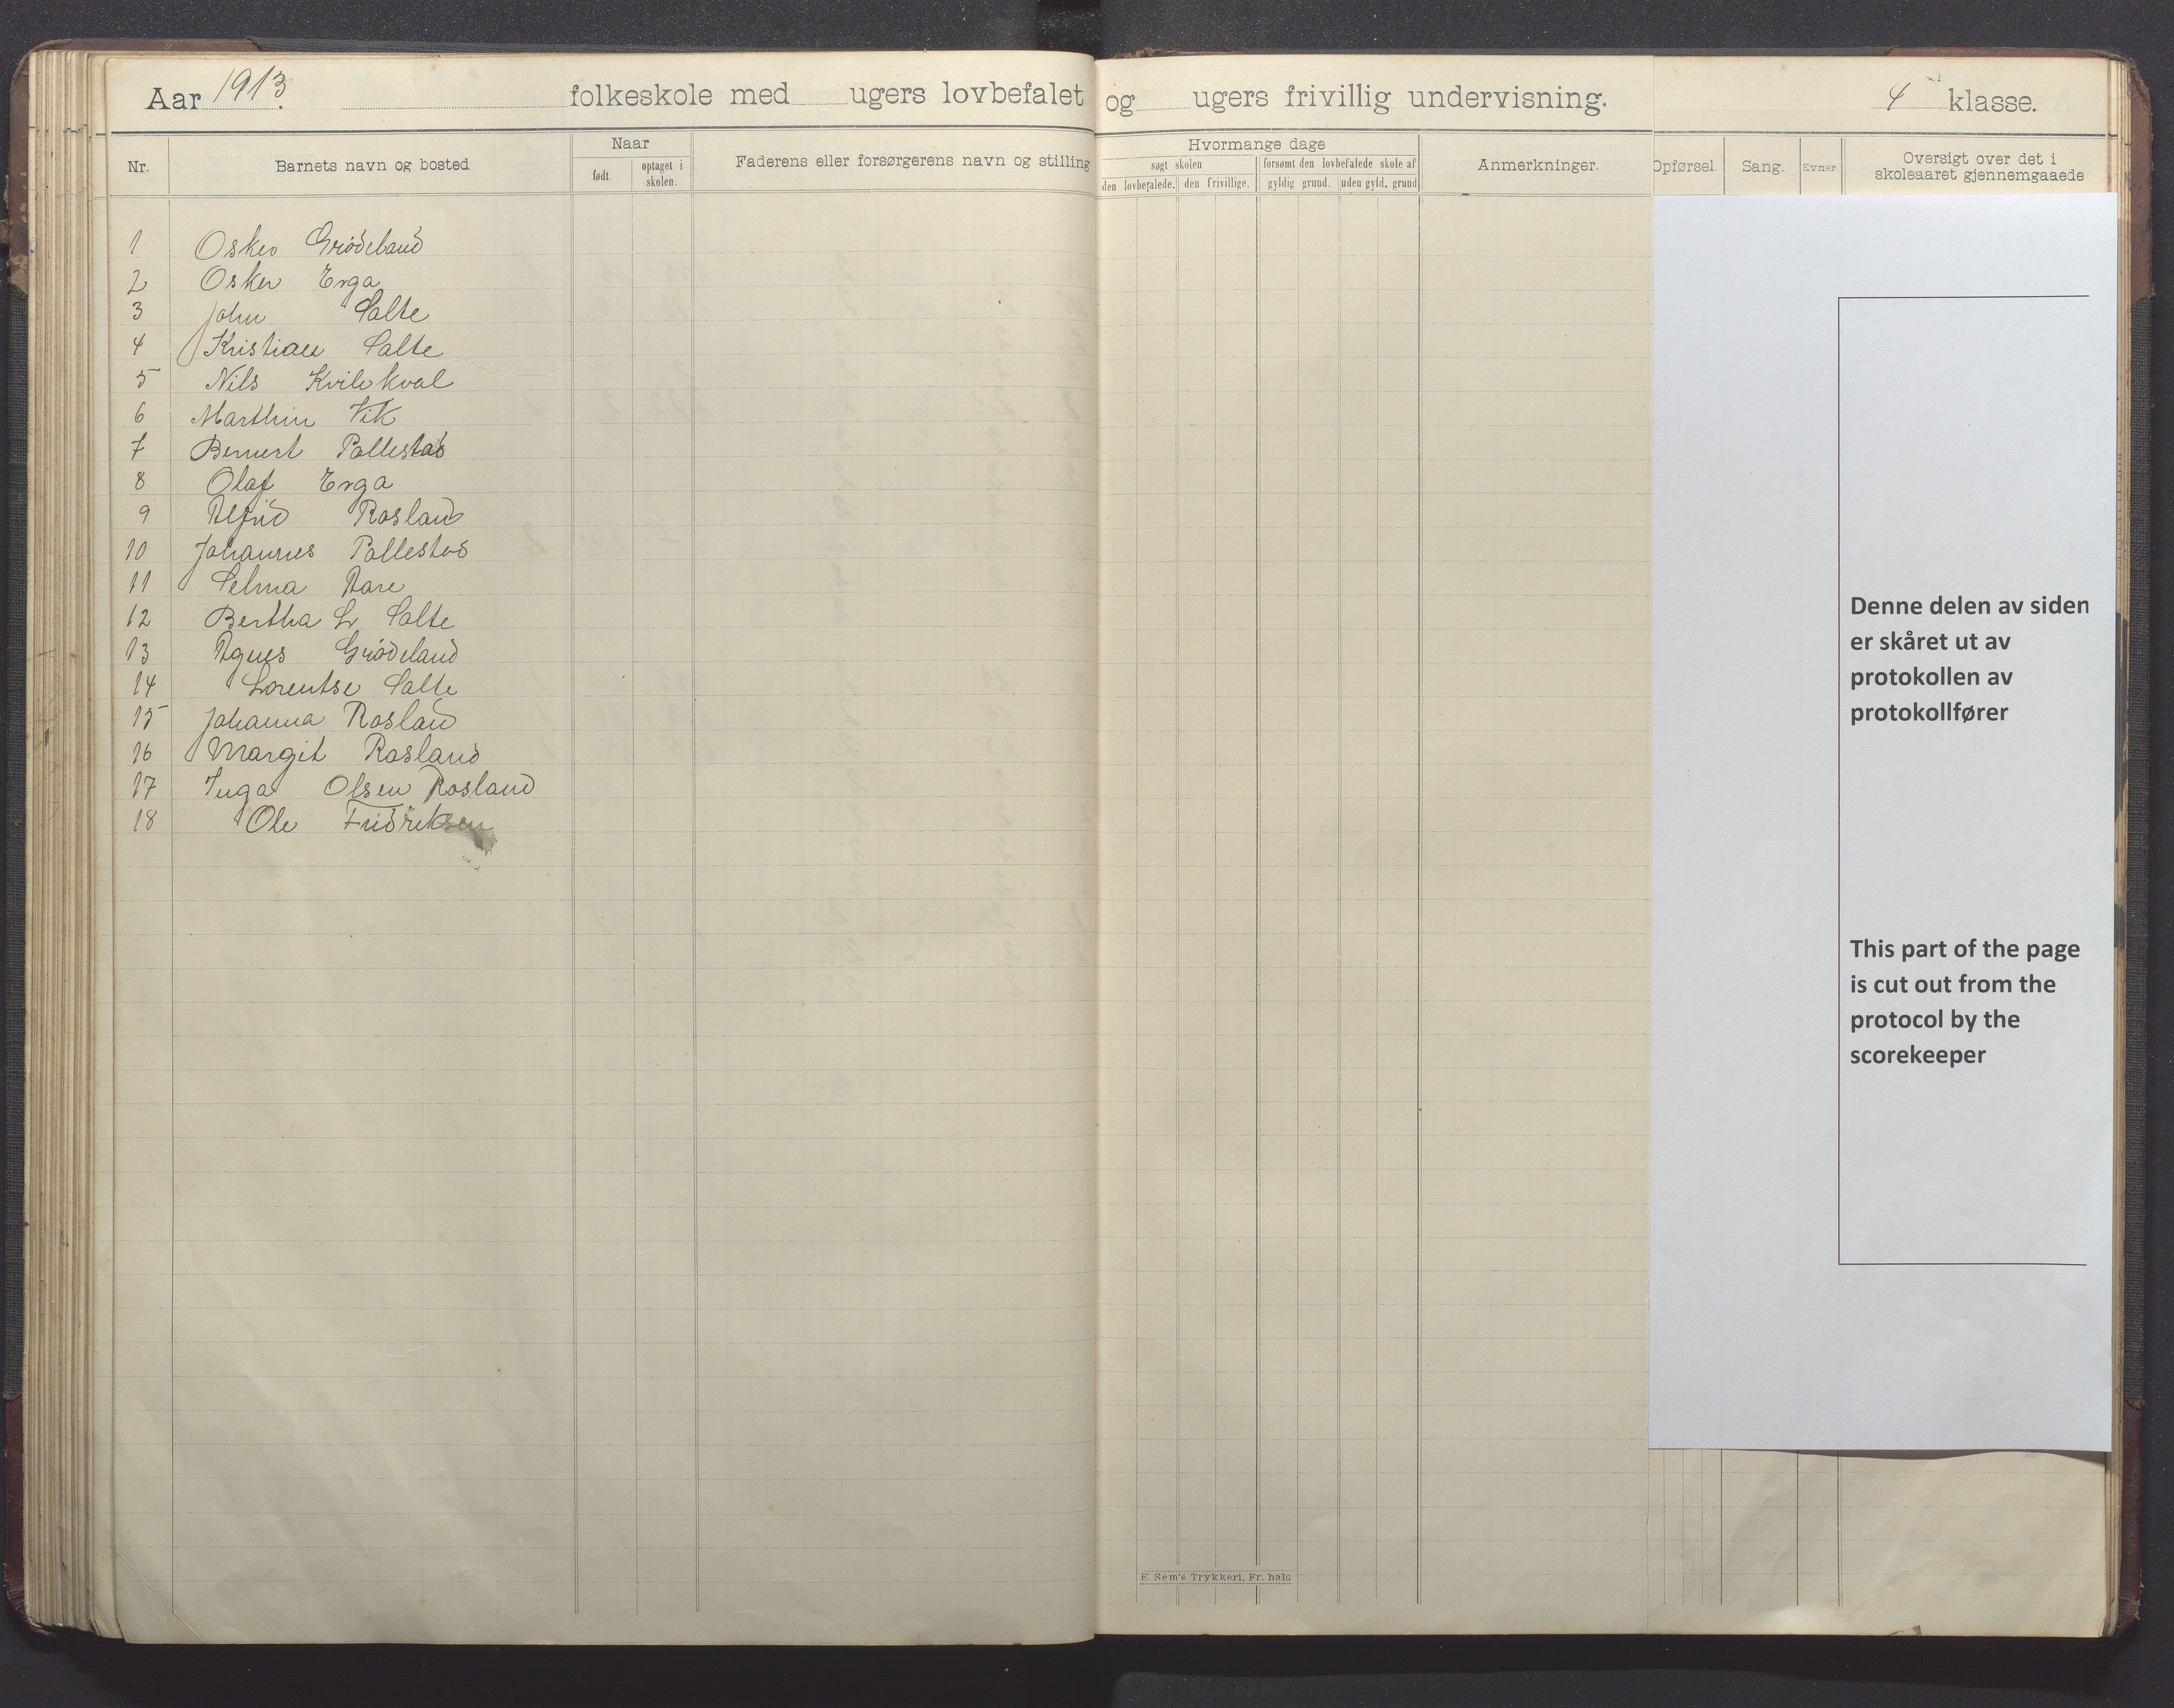 Aar 1913. folkeskole med ugers lovbefalet og ugers frivillig undervisning. 4 klasse.
Nr.
Barnets navn og bosted
Naar
født
optaget i skolen.
Faderens eller forsørgerens navn og stilling
Hvormange dage
søgt skolen
forsømt den lovbefalede skole af
den lovbefalede.
den frivillige.
gyldig grund.
uden gyld. grund
Anmerkninger.
Opførsel.
Sang.
Evner
Oversigt over det i
skoleaaret gjennemgaaede
1 Osker Grødeland
2 Osker Erga
3 John Salte
4 Kristian Salte
5 Nils Kvilekval
6 Marthin Vik
7 Bernert Pollestad
8 Olaf Erga
9 Alfrid Rosland
10 Johannes Pollestad
11 Selma Aare
12 Bertha L Salte
13 Agnes Grødeland
14 Lorentse Salte
15 Johanna Rosland
16 Margit Rosland
17 Inga Olsen Rosland
18 Ole Fridriksen
Denne delen av siden
er skåret ut av
protokollen av
protokollfører
This part of the page
is cut out from the
protocol by the
scorekeeper
E. Sem's Trykkeri, Fr. hald